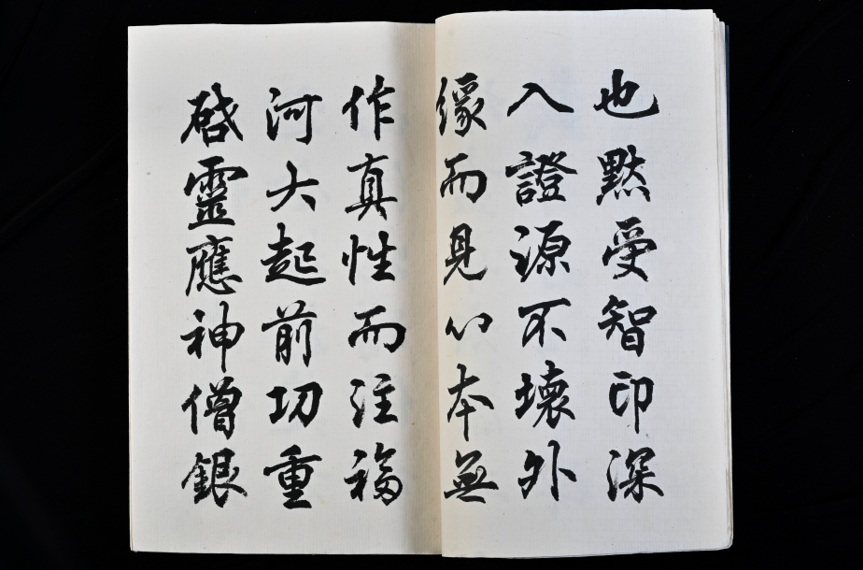 也默受智印深
入證源不壞外
緣而見心本無
作真性而注福
河大起前切重
啓靈應神僧銀